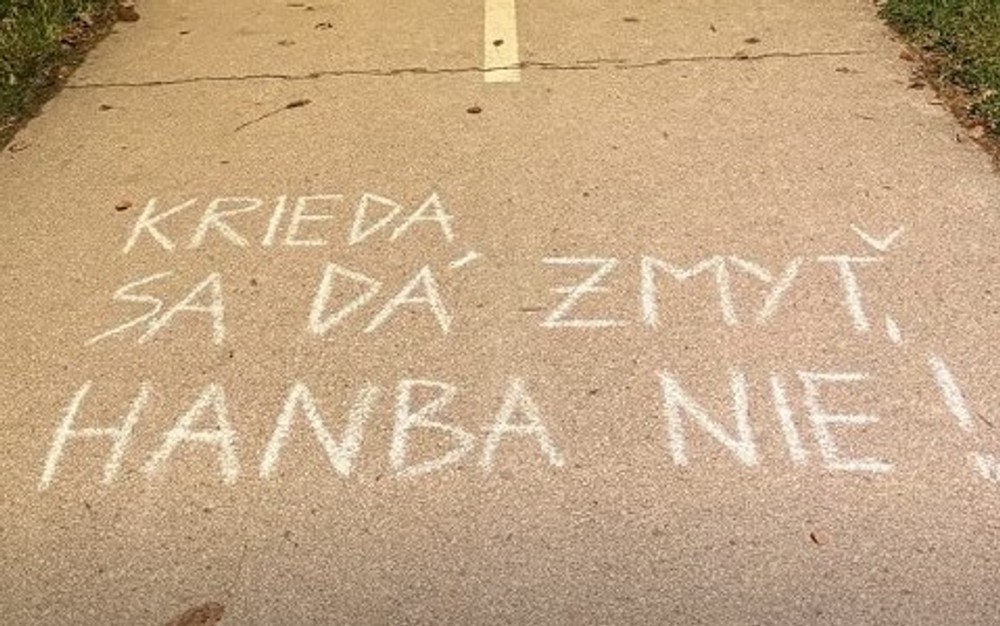 KRIEDA
SA DÁ ZMYŤ,
HANBA NIE!